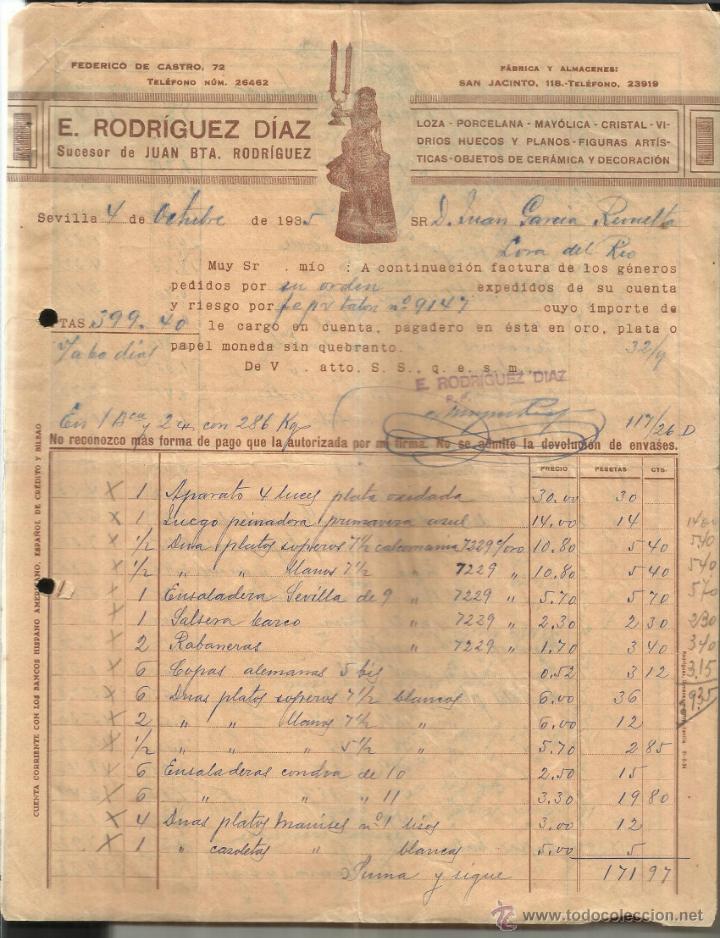 FEDERICO DE CASTRO, 72
TELÉFONO NÚM. 26462
FÁBRICA Y ALMACENES:
SAN JACINTO, 118.-TELÉFONO, 23919
E. RODRÍGUEZ DÍAZ
Sucesor de JUAN BTA. RODRÍGUEZ
LOZA - PORCELANA - MAYÓLICA - CRISTAL - VI-
DRIOS HUECOS Y PLANOS - FIGURAS ARTÍS-
TICAS - OBJETOS DE CERÁMICA Y DECORACIÓN
Sevilla 4 de Octubre de 1935 SR D. Juan Garcia
Lora del Rio
Muy Sr. mío: A continuación factura de los géneros
pedidos por su orden expedidos de su cuenta
y riesgo por talon nº 9147 cuyo importe de
PTAS 399.40 le cargo en cuenta, pagadero en ésta en oro, plata o
papel moneda sin quebranto. 32/9
De V. atto. S. S., q. e. s. m.
E. RODRIGUEZ DIAZ
En 1 Bca y 2 cx con 286 Kgs 117/26 D
No reconozco más forma de pago que la autorizada por mi firma. No se admite la devolución de envases.
PRECIO PESETAS CTS.
X 1 Aparato 4 luces plata oxidada 30.00 30
X 1 Juego peinadora primavera azul 14.00 14
X 1/2 Dna platos soperos 7 1/2 7229 c/oro 10.80 5 40
X 1/2 " " llanos 7 1/2 7229 " 10.80 5 40
X 1 Ensaladera Sevilla de 9 " 7229 " 5.70 5 70
X 1 Salsera barco " 7229 " 2.30 2 30
X 2 Rabaneras " 7229 " 1.70 3 40
X 6 Copas alemanas 5 bis 0.52 3 12
X 6 Dnas platos soperos 7 1/2 blancos 6.00 36
X 2 " " llanos 7 1/2 " 6.00 12
X 1/2 " " " 5 1/2 " 5.70 2 85
X 6 Ensaladeras de 10 2.50 15
X 6 " " " 11 3.30 19 80
X 4 Dnas platos Manises nº 1 lisos 3.00 12
X 1 " cazoletas " blancas 5.00 5
Suma y sigue 171 97
540
540
570
230
340
3.15
CUENTA CORRIENTE CON LOS BANCOS HISPANO AMERICANO, ESPAÑOL DE CRÉDITO Y BILBAO
www.todocoleccion.net